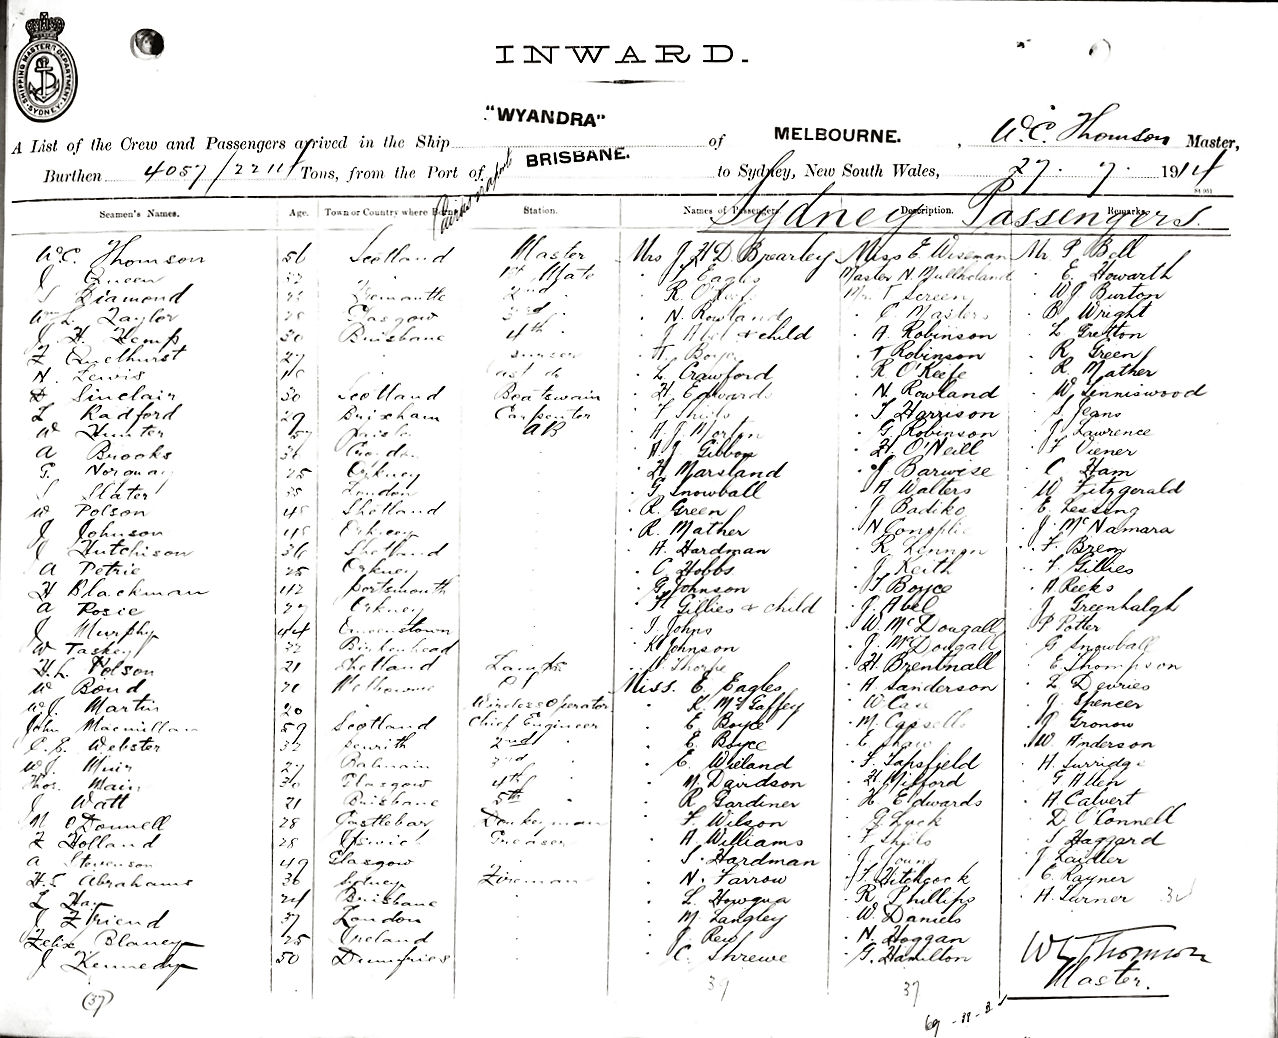 SHIPPING MASTER'S DEPARTMENT SYDNEY
INWARD.
A List of the Crew and Passengers arrived in the Ship "WYANDRA" of MELBOURNE. , W.C. Thomson Master,
Burthen 4057/2211 Tons, from the Port of BRISBANE. to Sydney, New South Wales, 27. 7. 1914
Seamen's Names. Age. Town or Country where Born. Station. Names of Passengers. Description. Remarks.
Sydney Passengers.
W.C. Thomson 56 Scotland Master Mrs J H D Brearley Miss E Wiseman Mr P Bell
J Queen 1st Mate Eagles Master N Mulholand E. Howarth
S Diamond Fremantle 2nd R. O'Keefe Mr T Screen WJ Burton
Wm L. Taylor Glasgow 3rd N. Rowland C Masters B Wright
J. H. Kemp 30 Brisbane 4th J Abel & child A. Robinson L Gretton
27 Boyce T Robinson R. Green
N. Lewis L Crawford R O'Keefe R Mather
Sinclair 30 Scotland Boatswain H Edwards N. Rowland W Tenniswood
L Radford 29 Brixham Carpenter T Harrison S. Jeans
W Hunter AB A. J Morton G Robinson J. Lawrence
A Brooks A. J. Gibbon H O'Neill F Viener
G. Norquay 25 Orkney H. Marsland J Barwise C Ham
S Slater London G Snowball A Walters W Fitzgerald
W Polson 48 Shetland R. Green J Badiko E Lessing
J Johnson R. Mather J. McNamara
J Hutchison 36 Shetland A. Hardman R Lennon F. Bren
A Petrie 25 Orkney C Hobbs J Keith F Gillies
H Blackman 42 Portsmouth G Johnson F Boyce A Reeks
A Rosie 27 Orkney Gillies & child J. Abel J Greenhalgh
J Murphy 44 Queenstown J. Johns W McDougall P Potter
W Taskey Birkenhead K Johnson J. McDougall G Snowball
H.L. Polson 21 Shetland Lamps Thorpe H. Brentnall E. Thompson
W Bond Melbourne Miss. E. Eagles A. Sanderson L Devries
W.J. Martin 20 Wireless Operator K. McGaffey J. Spencer
John Macmillan 59 Scotland Chief Engineer E Boyce M. Cassells J Gronow
Webster 32 Penrith 2nd E Boyce E Shaw W. Anderson
W.J. Muir 27 Balmain 3rd E. Wieland F. Tapsfield H. Surridge
Thos. Main 30 Glasgow 4th M. Davidson H Milford G Allen
J Watt 21 Brisbane 5th R Gardiner H Edwards A Calvert
M O'Donnell 28 Castlebar Donkeyman F Wilson D O'Connell
F Holland 28 Ipswich Greaser A Williams S Haggard
A Stevenson 49 Glasgow S. Hardman J. Young J Laidler
H.S. Abrahams 36 Sydney Fireman N. Farrow F Hitchcock E. Rayner
Hay 24 Brisbane L. Howqua R Phillips H. Turner
J Friend 37 London M. Langley W. Daniels
Felix Blaney 25 Ireland N. Hoggan
J Kennedy 50 Dumfries C. Shrewe G. Hamilton
W C Thomson
Master.
(37) 37